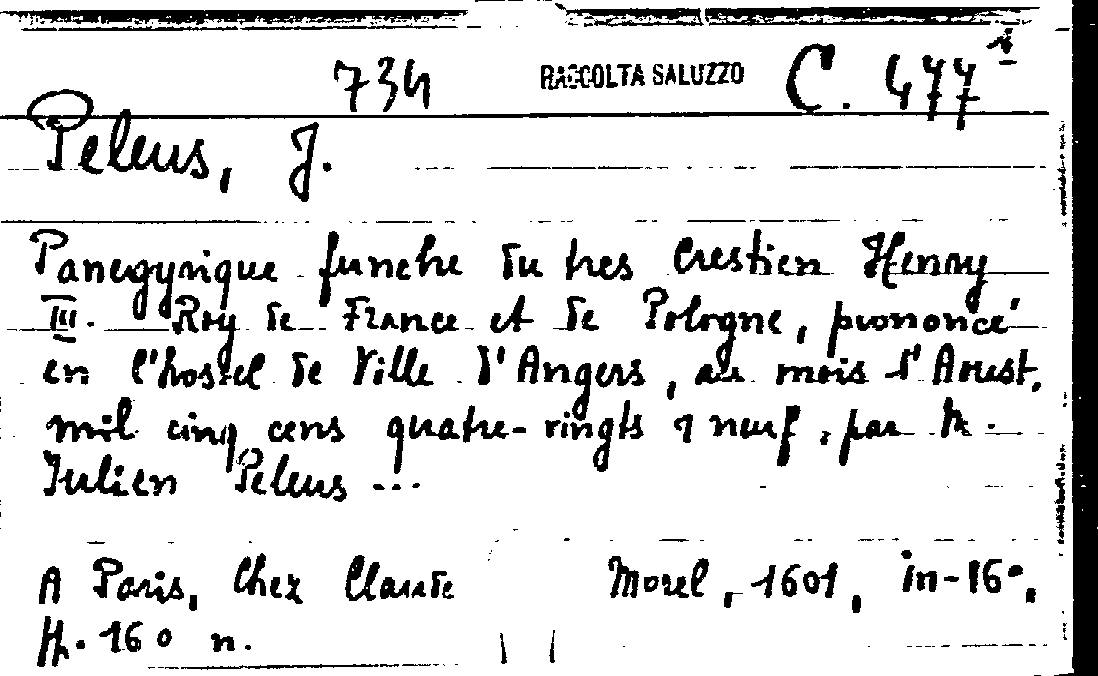 734 RACCOLTA SALUZZO C. 477 1
Peleus, J.
Panegyrique funebre du tres Crestien Henry
III. Roy de France et de Pologne, prononcé
en l'hostel de Ville d'Angers, au mois d'Aoust.
mil cinq cens quatre-vingts & neuf, par M.
Iulien Peleus ...
A Paris, Chez Claude Morel, 1601, in-16°,
pp. 16 n.